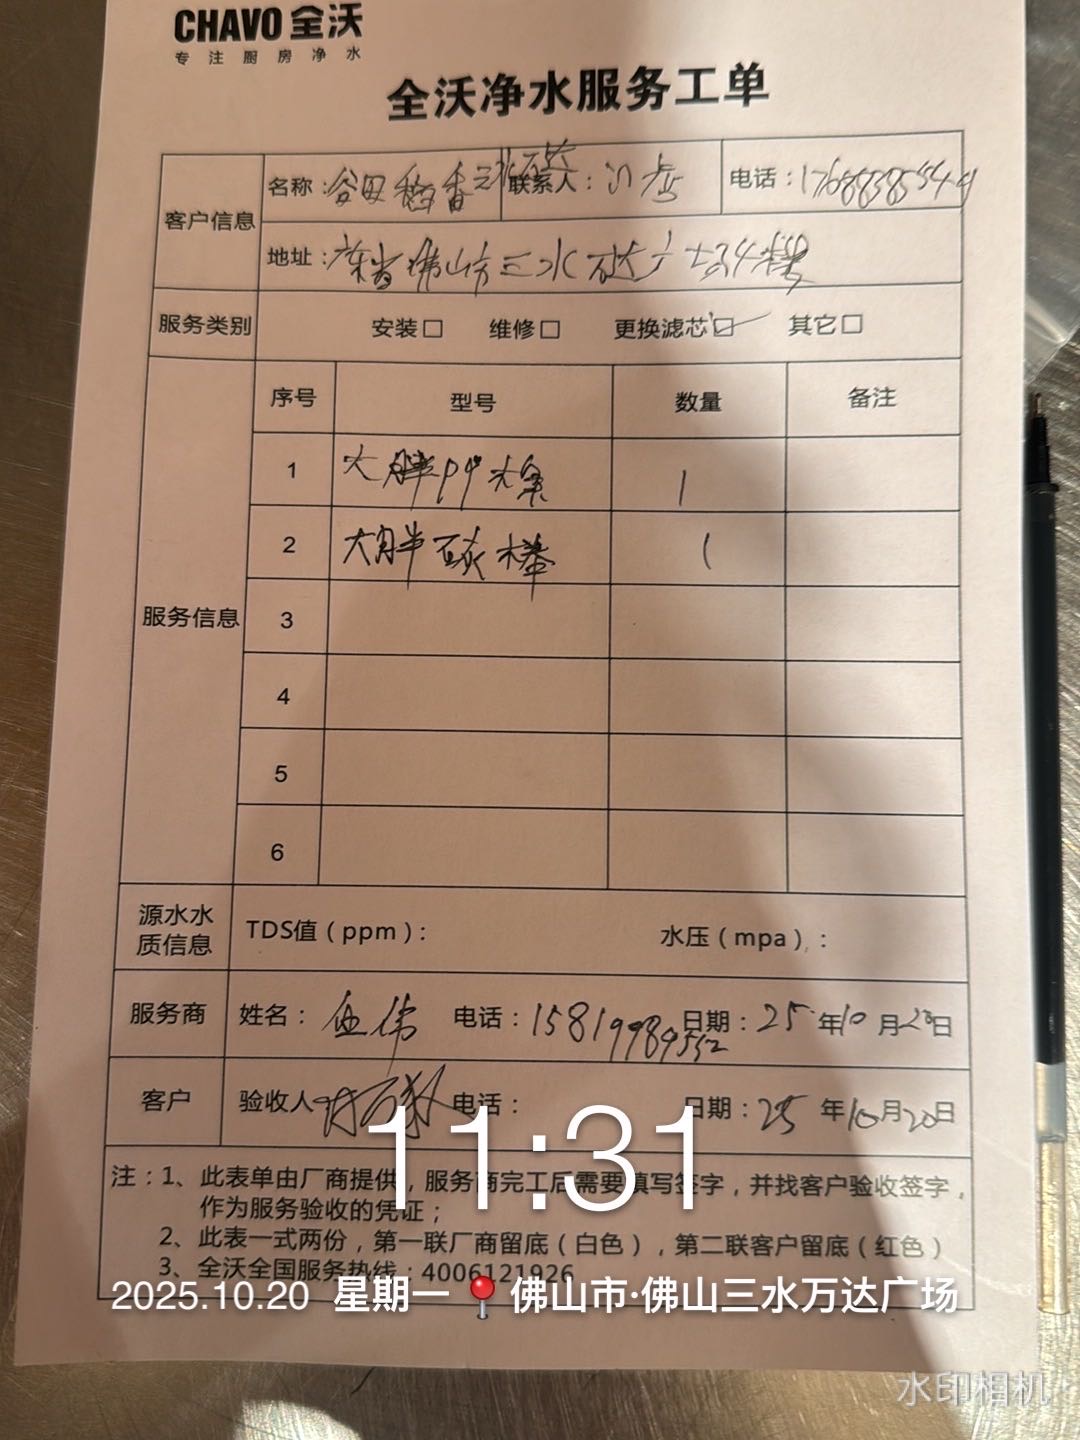 CHAVO 全沃
专注厨房净水
全沃净水服务工单
客户信息
名称：谷田稻香三水万达 联系人： 电话：
地址：广东省佛山市三水万达广场4楼
服务类别 安装□ 维修□ 更换滤芯☑ 其它□
服务信息
序号 型号 数量 备注
1 大胖PP棉 1
2 大胖碳棒 1
3
4
5
6
源水水质信息 TDS值（ppm）： 水压（mpa）：
服务商 姓名： 电话：15819989552 日期：25年10月20日
客户 验收人 电话： 日期：25年10月20日
11:31
注：1、此表单由厂商提供，服务商完工后需要填写签字，并找客户验收签字，
作为服务验收的凭证；
2、此表一式两份，第一联厂商留底（白色），第二联客户留底（红色）
3、全沃全国服务热线：4006121926
2025.10.20 星期一 📍佛山市·佛山三水万达广场
水印相机